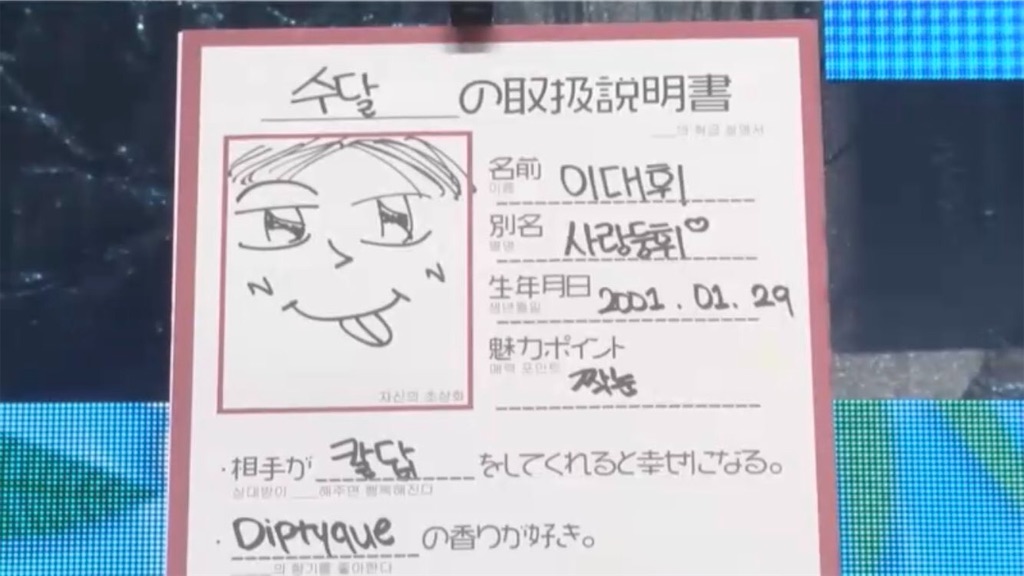 수달 の取扱説明書
___의 취급 설명서
名前 이대휘
이름
別名 사랑둥휘♡
별명
生年月日 2001.01.29
생년월일
魅力ポイント
매력 포인트 짝눈
자신의 초상화
・相手が 칼답 をしてくれると幸せになる。
상대방이 ___해주면 행복해진다
・Diptyque の香りが好き。
___의 향기를 좋아한다